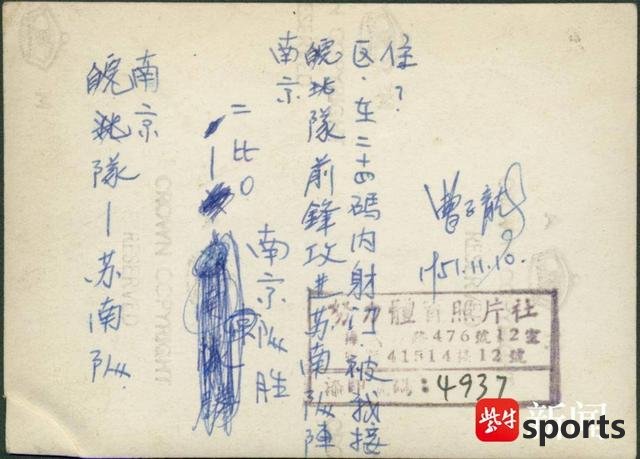 皖北隊—苏南队
南京
二比0
南京队胜
南京
皖北隊前鋒攻井苏南队陣
区·在二十四碼内射门被我接
住？
曹子龍
1951.11.10.
努力體育照片社
路476號12室
41514接12號
添印號碼：4937
CROWN COPYRIGHT
RESERVED
紫牛新闻
sports